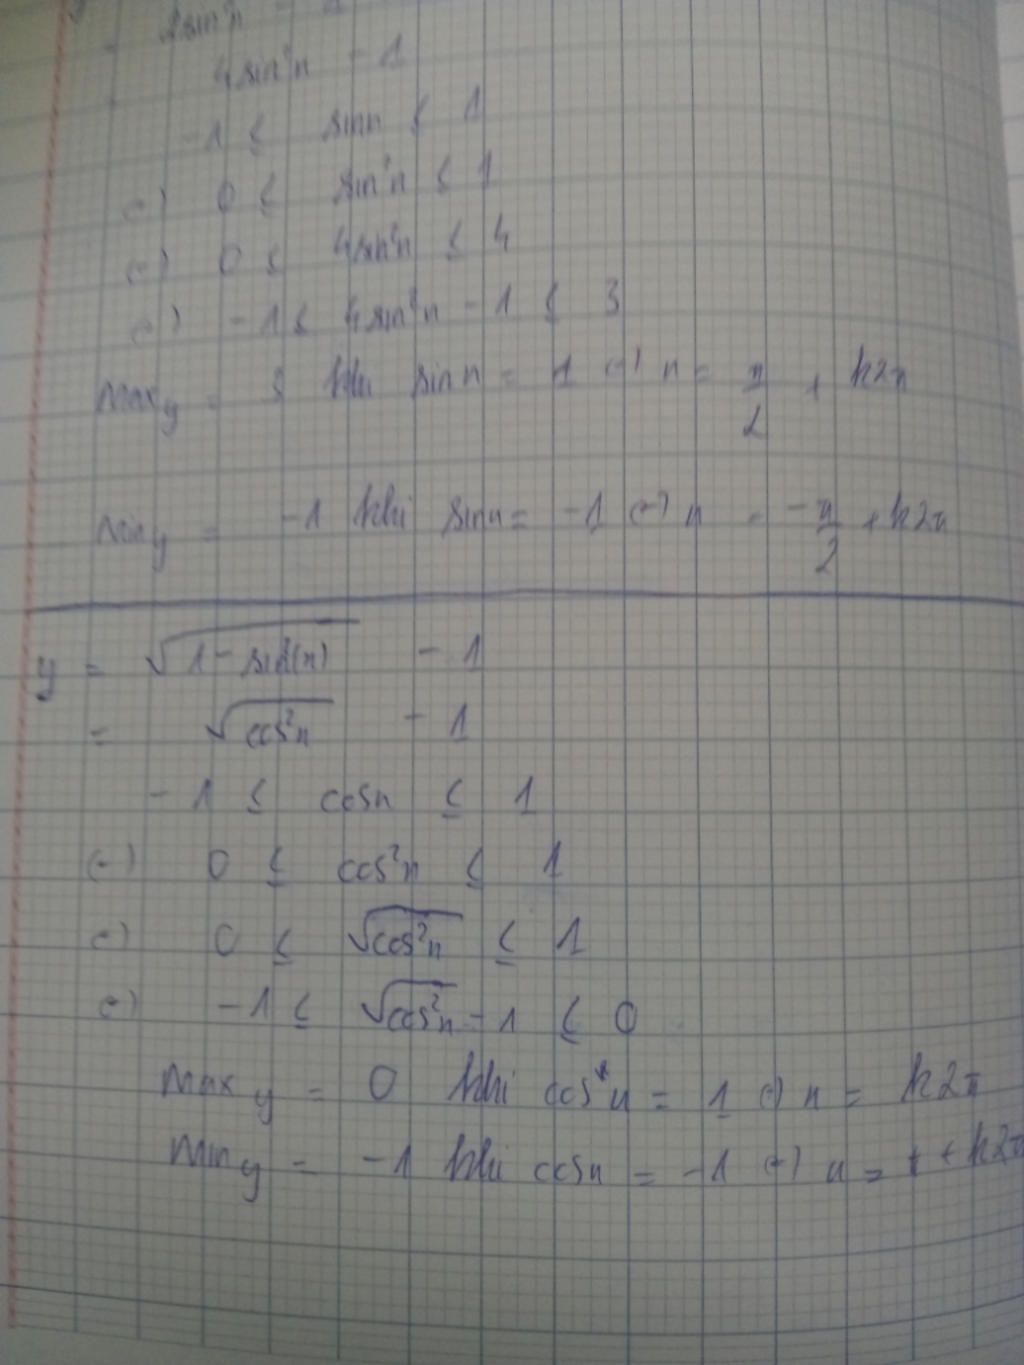 4sin²x - 1
-1 ≤ sinx ≤ 1
(=) 0 ≤ sin²x ≤ 1
(=) 0 ≤ 4sin²x ≤ 4
(=) -1 ≤ 4sin²x - 1 ≤ 3
Max y = 3 khi sin x = 1 (=) x = π/2 + k2π
Min y = -1 khi sinx = -1 (=) x = -π/2 + k2π
y = √(1 - sin²(x)) - 1
= √(cos²x) - 1
-1 ≤ cosx ≤ 1
(=) 0 ≤ cos²x ≤ 1
(=) 0 ≤ √(cos²x) ≤ 1
(=) -1 ≤ √(cos²x) - 1 ≤ 0
Max y = 0 khi cos x = 1 (=) x = k2π
Min y = -1 khi cosx = -1 (=) x = + k2π